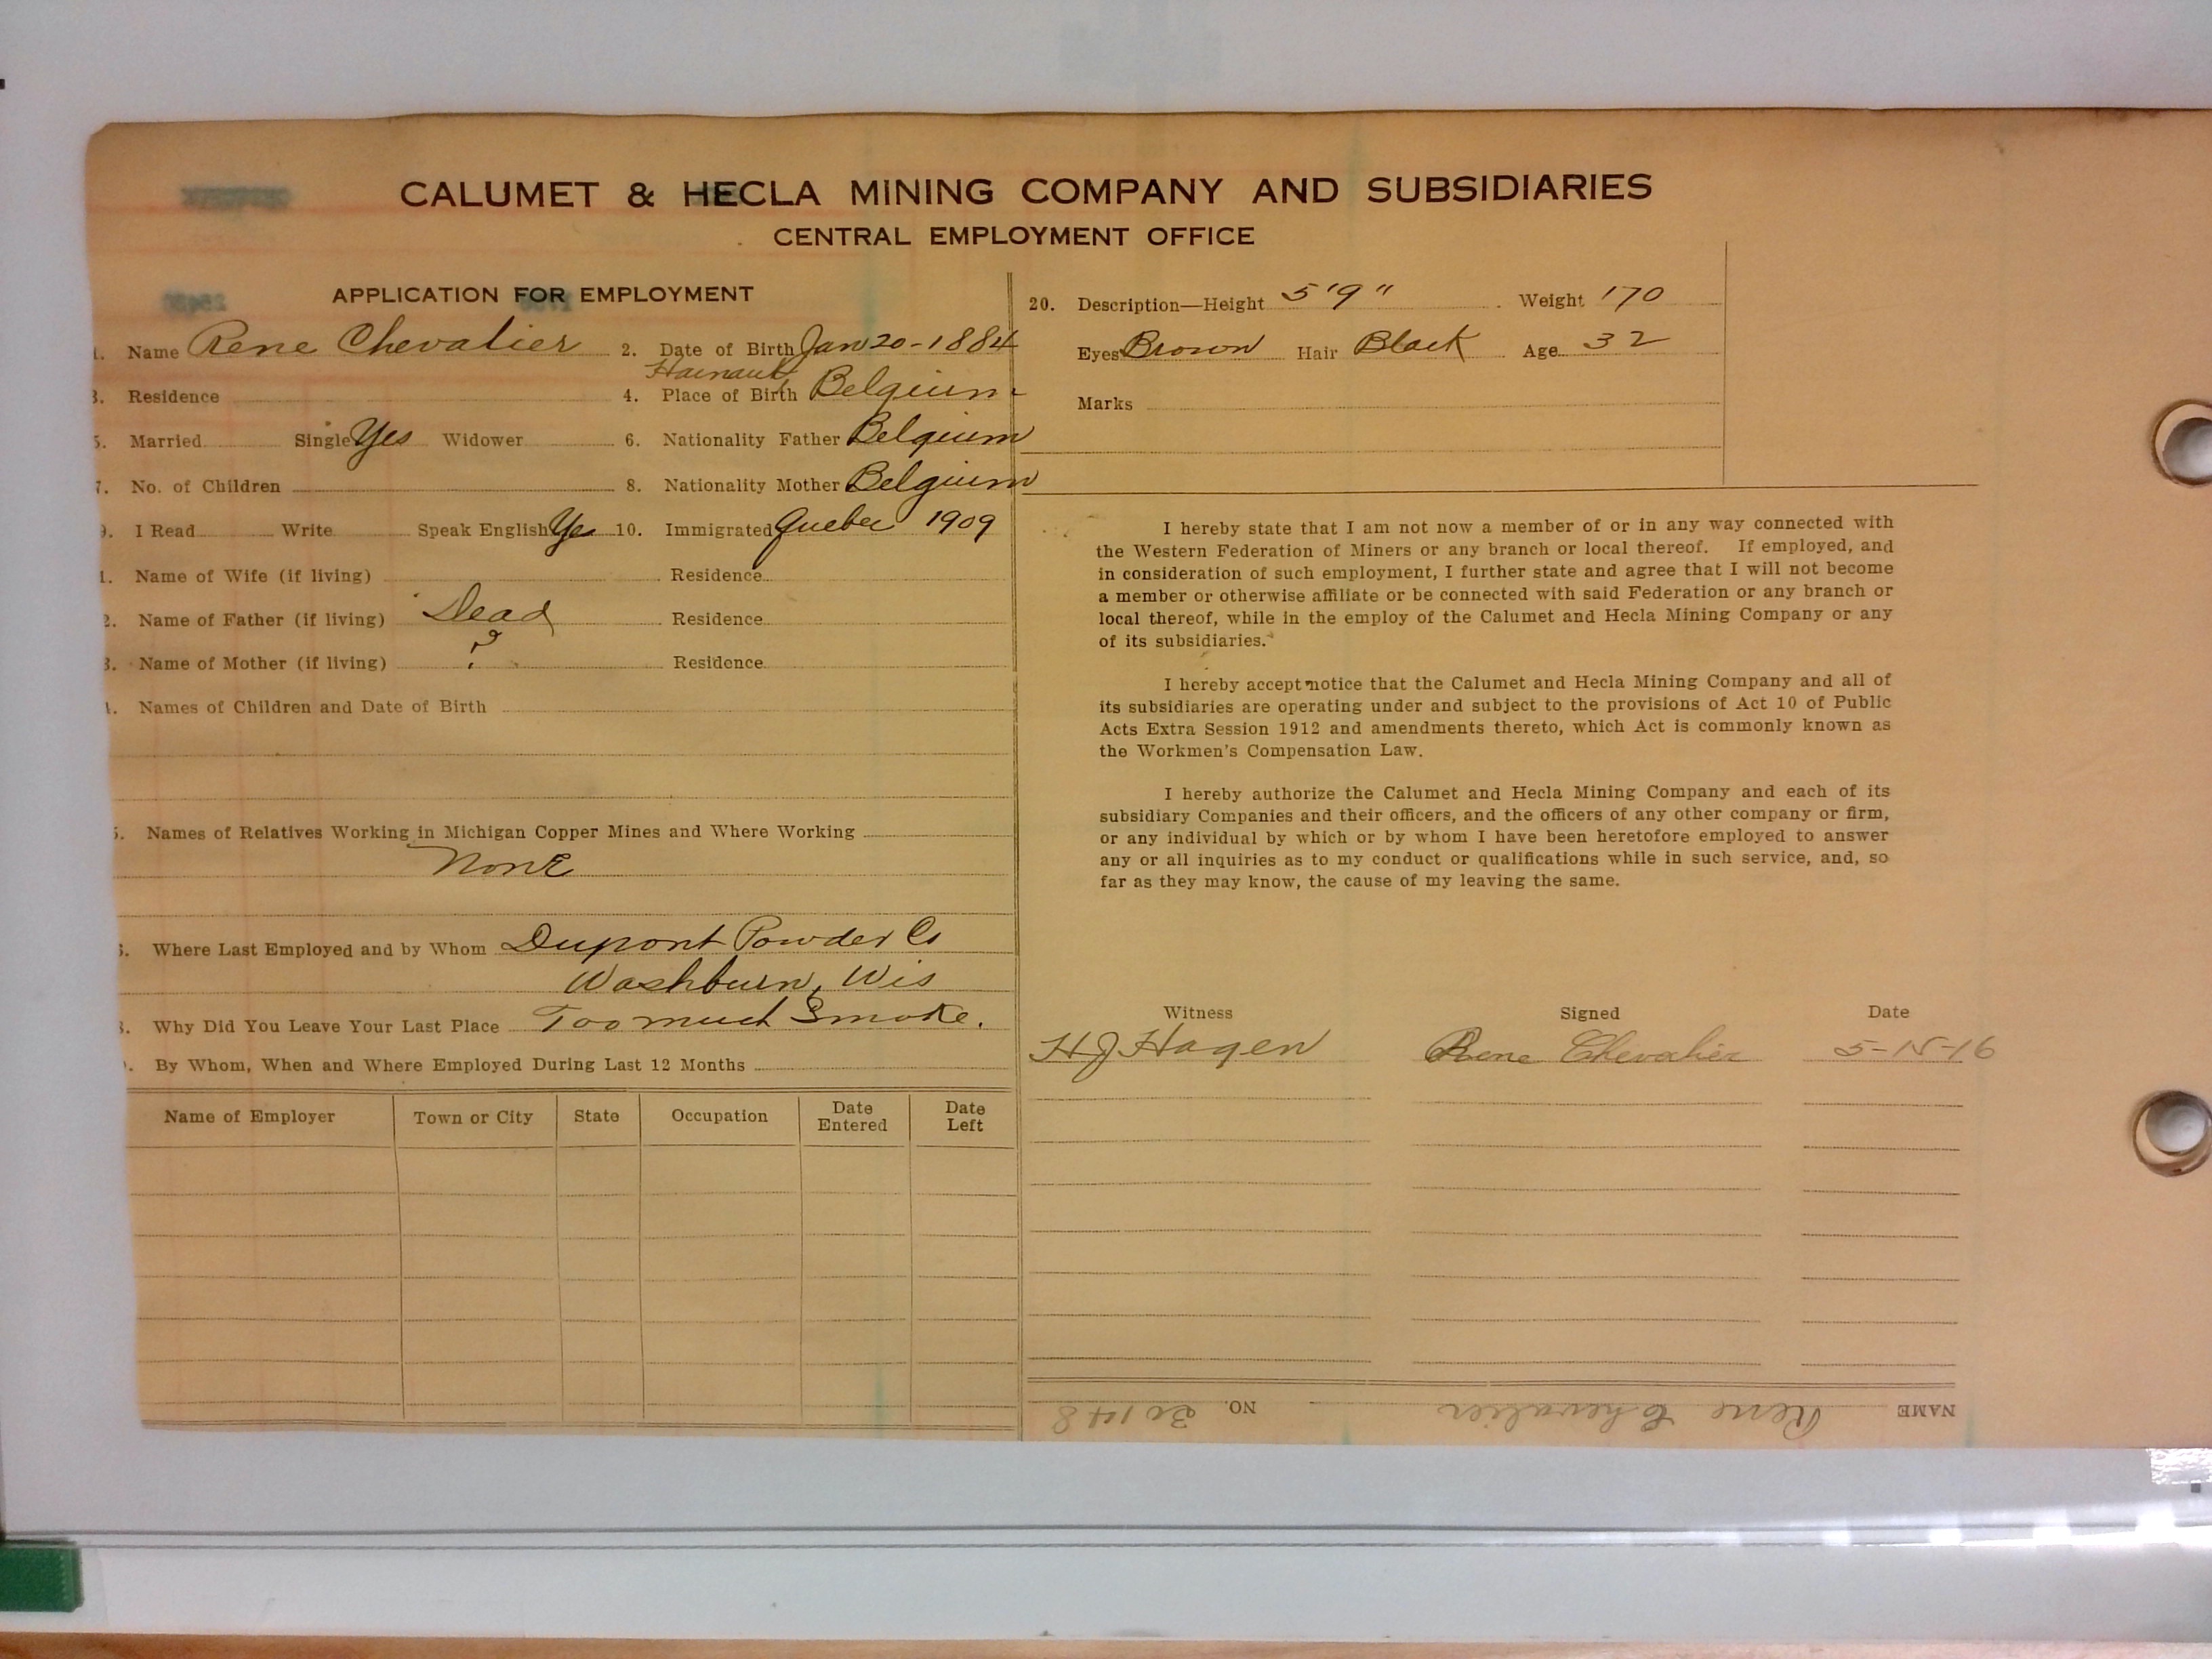 CALUMET & HECLA MINING COMPANY AND SUBSIDIARIES
CENTRAL EMPLOYMENT OFFICE
APPLICATION FOR EMPLOYMENT
1. Name Rene Chevalier 2. Date of Birth Jan 20-1884
Hainaut
3. Residence 4. Place of Birth Belgium
5. Married Single Yes Widower 6. Nationality Father Belgium
7. No. of Children 8. Nationality Mother Belgium
9. I Read Write Speak English Yes 10. Immigrated Quebec 1909
1. Name of Wife (if living) Residence
2. Name of Father (if living) Dead Residence
3. Name of Mother (if living) ? Residence
4. Names of Children and Date of Birth
5. Names of Relatives Working in Michigan Copper Mines and Where Working
None
6. Where Last Employed and by Whom Dupont Powder Co
Washburn, Wis
8. Why Did You Leave Your Last Place Too much Smoke.
9. By Whom, When and Where Employed During Last 12 Months
Name of Employer Town or City State Occupation Date Entered Date Left
20. Description—Height 5'9" Weight 170
Eyes Brown Hair Black Age 32
Marks
I hereby state that I am not now a member of or in any way connected with
the Western Federation of Miners or any branch or local thereof. If employed, and
in consideration of such employment, I further state and agree that I will not become
a member or otherwise affiliate or be connected with said Federation or any branch or
local thereof, while in the employ of the Calumet and Hecla Mining Company or any
of its subsidiaries.
I hereby accept notice that the Calumet and Hecla Mining Company and all of
its subsidiaries are operating under and subject to the provisions of Act 10 of Public
Acts Extra Session 1912 and amendments thereto, which Act is commonly known as
the Workmen's Compensation Law.
I hereby authorize the Calumet and Hecla Mining Company and each of its
subsidiary Companies and their officers, and the officers of any other company or firm,
or any individual by which or by whom I have been heretofore employed to answer
any or all inquiries as to my conduct or qualifications while in such service, and, so
far as they may know, the cause of my leaving the same.
Witness Signed Date
H J Hagen Rene Chevalier 5-15-16
NAME Rene Chevalier NO. 30148